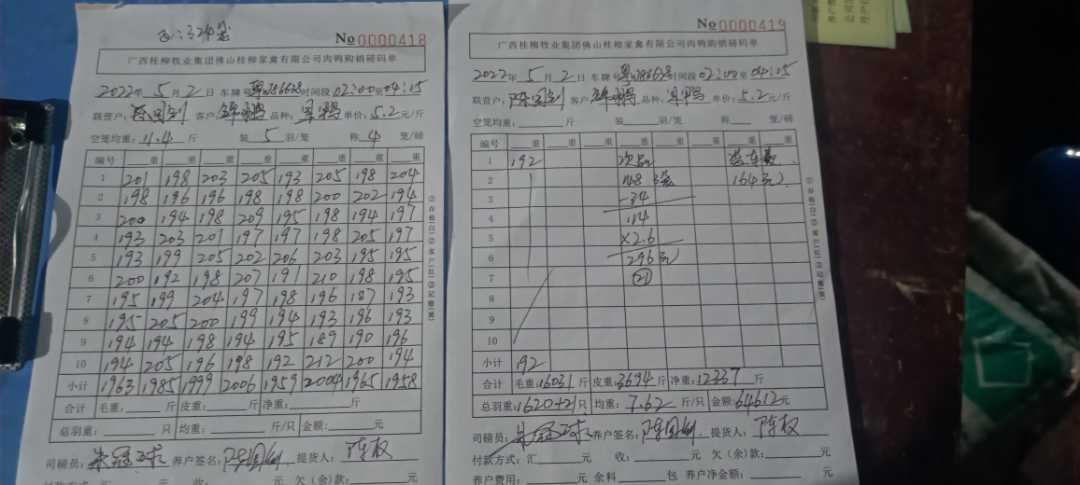 No 0000418
广西桂柳牧业集团佛山桂柳家禽有限公司肉鸭购销磅码单
2022年 5月 2日 车牌号 时间段 02:00至04:15
联营户: 客户: 品种: 单价: 5.2元/斤
空笼均重: 11.4 斤 装 5 羽/笼 称 4 笼/磅
编号 重 重 重 重 重 重 重 重
1 201 198 203 205 193 205 198 204
2 198 196 196 198 198 200 202 194
3 200 194 198 209 195 198 194 197
4 193 203 201 197 197 198 205 197
5 193 199 205 202 206 203 195 195
6 200 192 198 207 191 210 198 195
7 195 199 204 197 198 196 187 193
8 195 205 200 199 194 193 196 193
9 194 194 198 194 195 189 190 196
10 194 205 196 198 192 212 200 194
小计 1963 1985 1999 2006 1959 2004 1965 1958
合计 毛重: 斤 皮重: 斤 净重: 斤
总羽重: 只 均重: 斤/只 金额: 元
司磅员: 养户签名: 提货人: 陈权
付款方式: 汇 元 收: 元 欠(余)款: 元
No 0000419
广西桂柳牧业集团佛山桂柳家禽有限公司肉鸭购销磅码单
2022年 5月 2日 车牌 时间段 02:00至04:15
联营户: 客户: 品种: 单价: 5.2元/斤
空笼均重: 斤 装 羽/笼 称 笼/磅
编号 重 重 重 重 重 重 重 重
1 192
2 148 (64元)
3 -34
4 114
5 ×2.6
6 296元
7 (21)
8
9
10
小计 192
合计 毛重: 16031斤 皮重: 3694斤 净重: 12337斤
总羽重: 1620+21只 均重: 7.62斤/只 金额: 64612元
司磅员: 养户签名: 提货人: 陈权
付款方式: 汇 元 收: 元 欠(余)款: 元
养户费用: 元 余料 包 养户净金额: 元